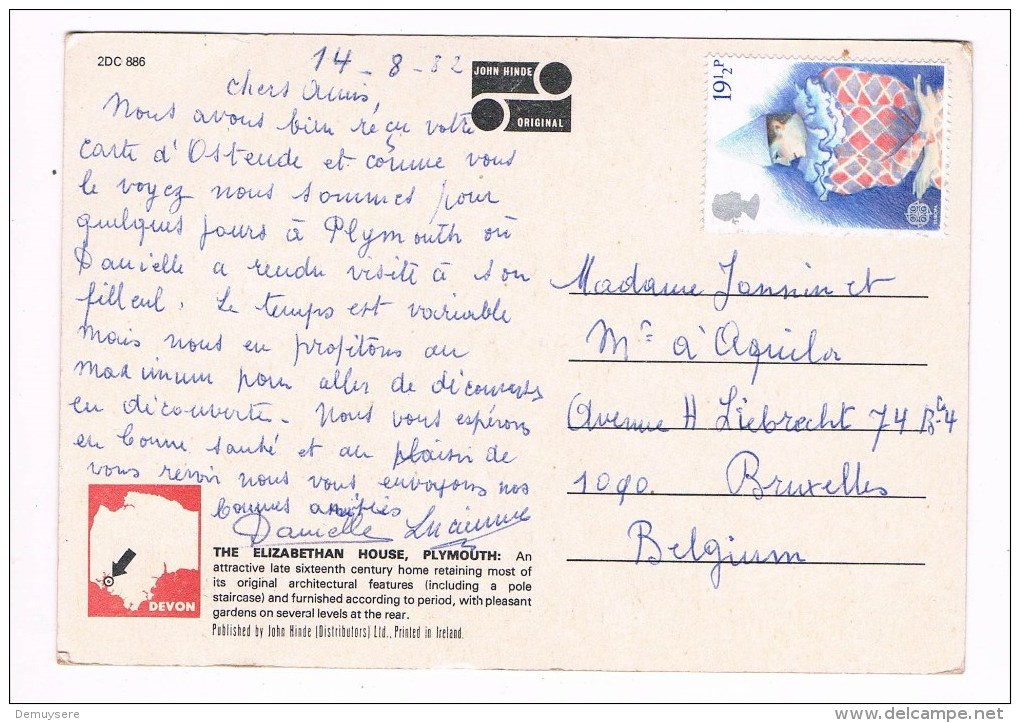 2DC 886
14-8-82
JOHN HINDE
ORIGINAL
19½P
EUROPA
Chers Amis,
Nous avons bien reçu votre
carte d'Ostende et comme vous
le voyez nous sommes pour
quelques jours à Plymouth où
Danielle a rendu visite à son
filleul. Le temps est variable
mais nous en profitons au
maximum pour aller de découvertes
en découverte. Nous vous espérons
en bonne santé et au plaisir de
vous revoir nous vous envoyons nos
bonnes amitiés
Danielle Lucienne
Madame Jannin et
Mr d'Aquila
Avenue H Liebrecht 74 Bte 4
1090 Bruxelles
Belgium
DEVON
THE ELIZABETHAN HOUSE, PLYMOUTH: An
attractive late sixteenth century home retaining most of
its original architectural features (including a pole
staircase) and furnished according to period, with pleasant
gardens on several levels at the rear.
Published by John Hinde (Distributors) Ltd., Printed in Ireland.
Demuysere
delcampe.net